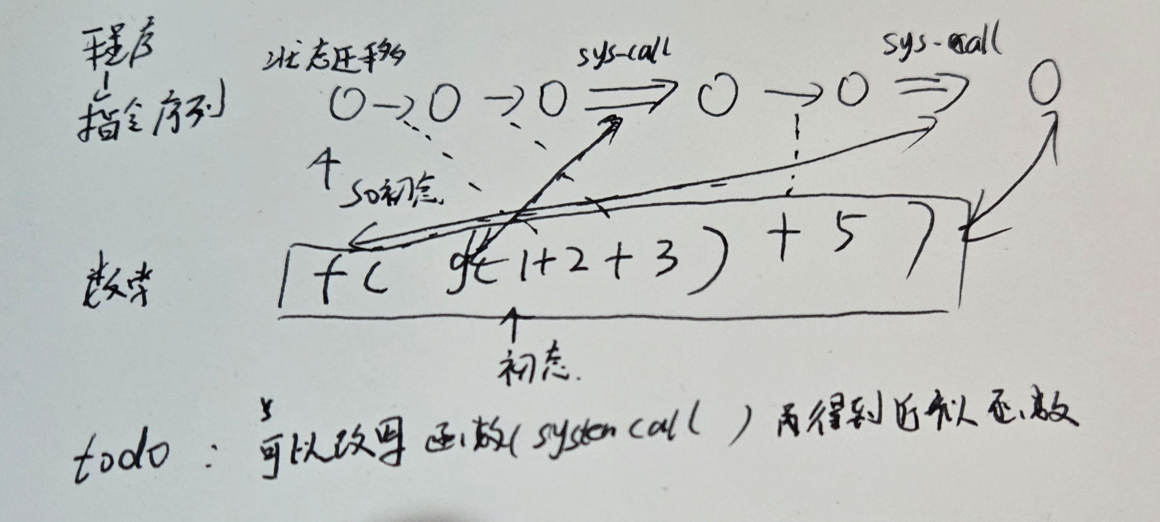 程序
指令序列
状态迁移
sys-call
sys-call
S0初态
数学
f( g(1+2+3) +5 )
初态.
todo : 可以改写函数(system call) 而得到近似函数